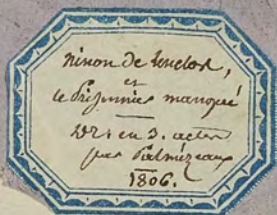 Ninon de Lenclos,
et
le Prisonnier manqué
en 3. actes
par Palmézeaux
1806.